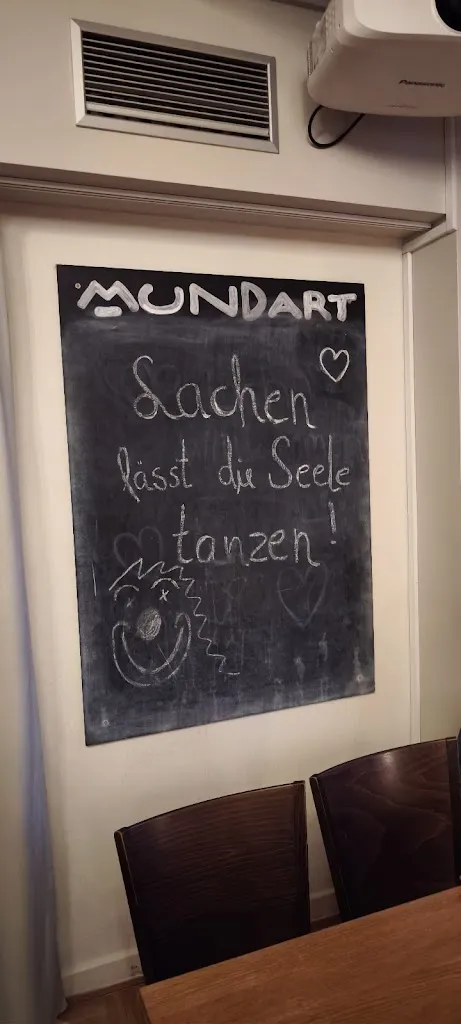 Panasonic
MUNDART
Lachen
lässt die Seele
tanzen!